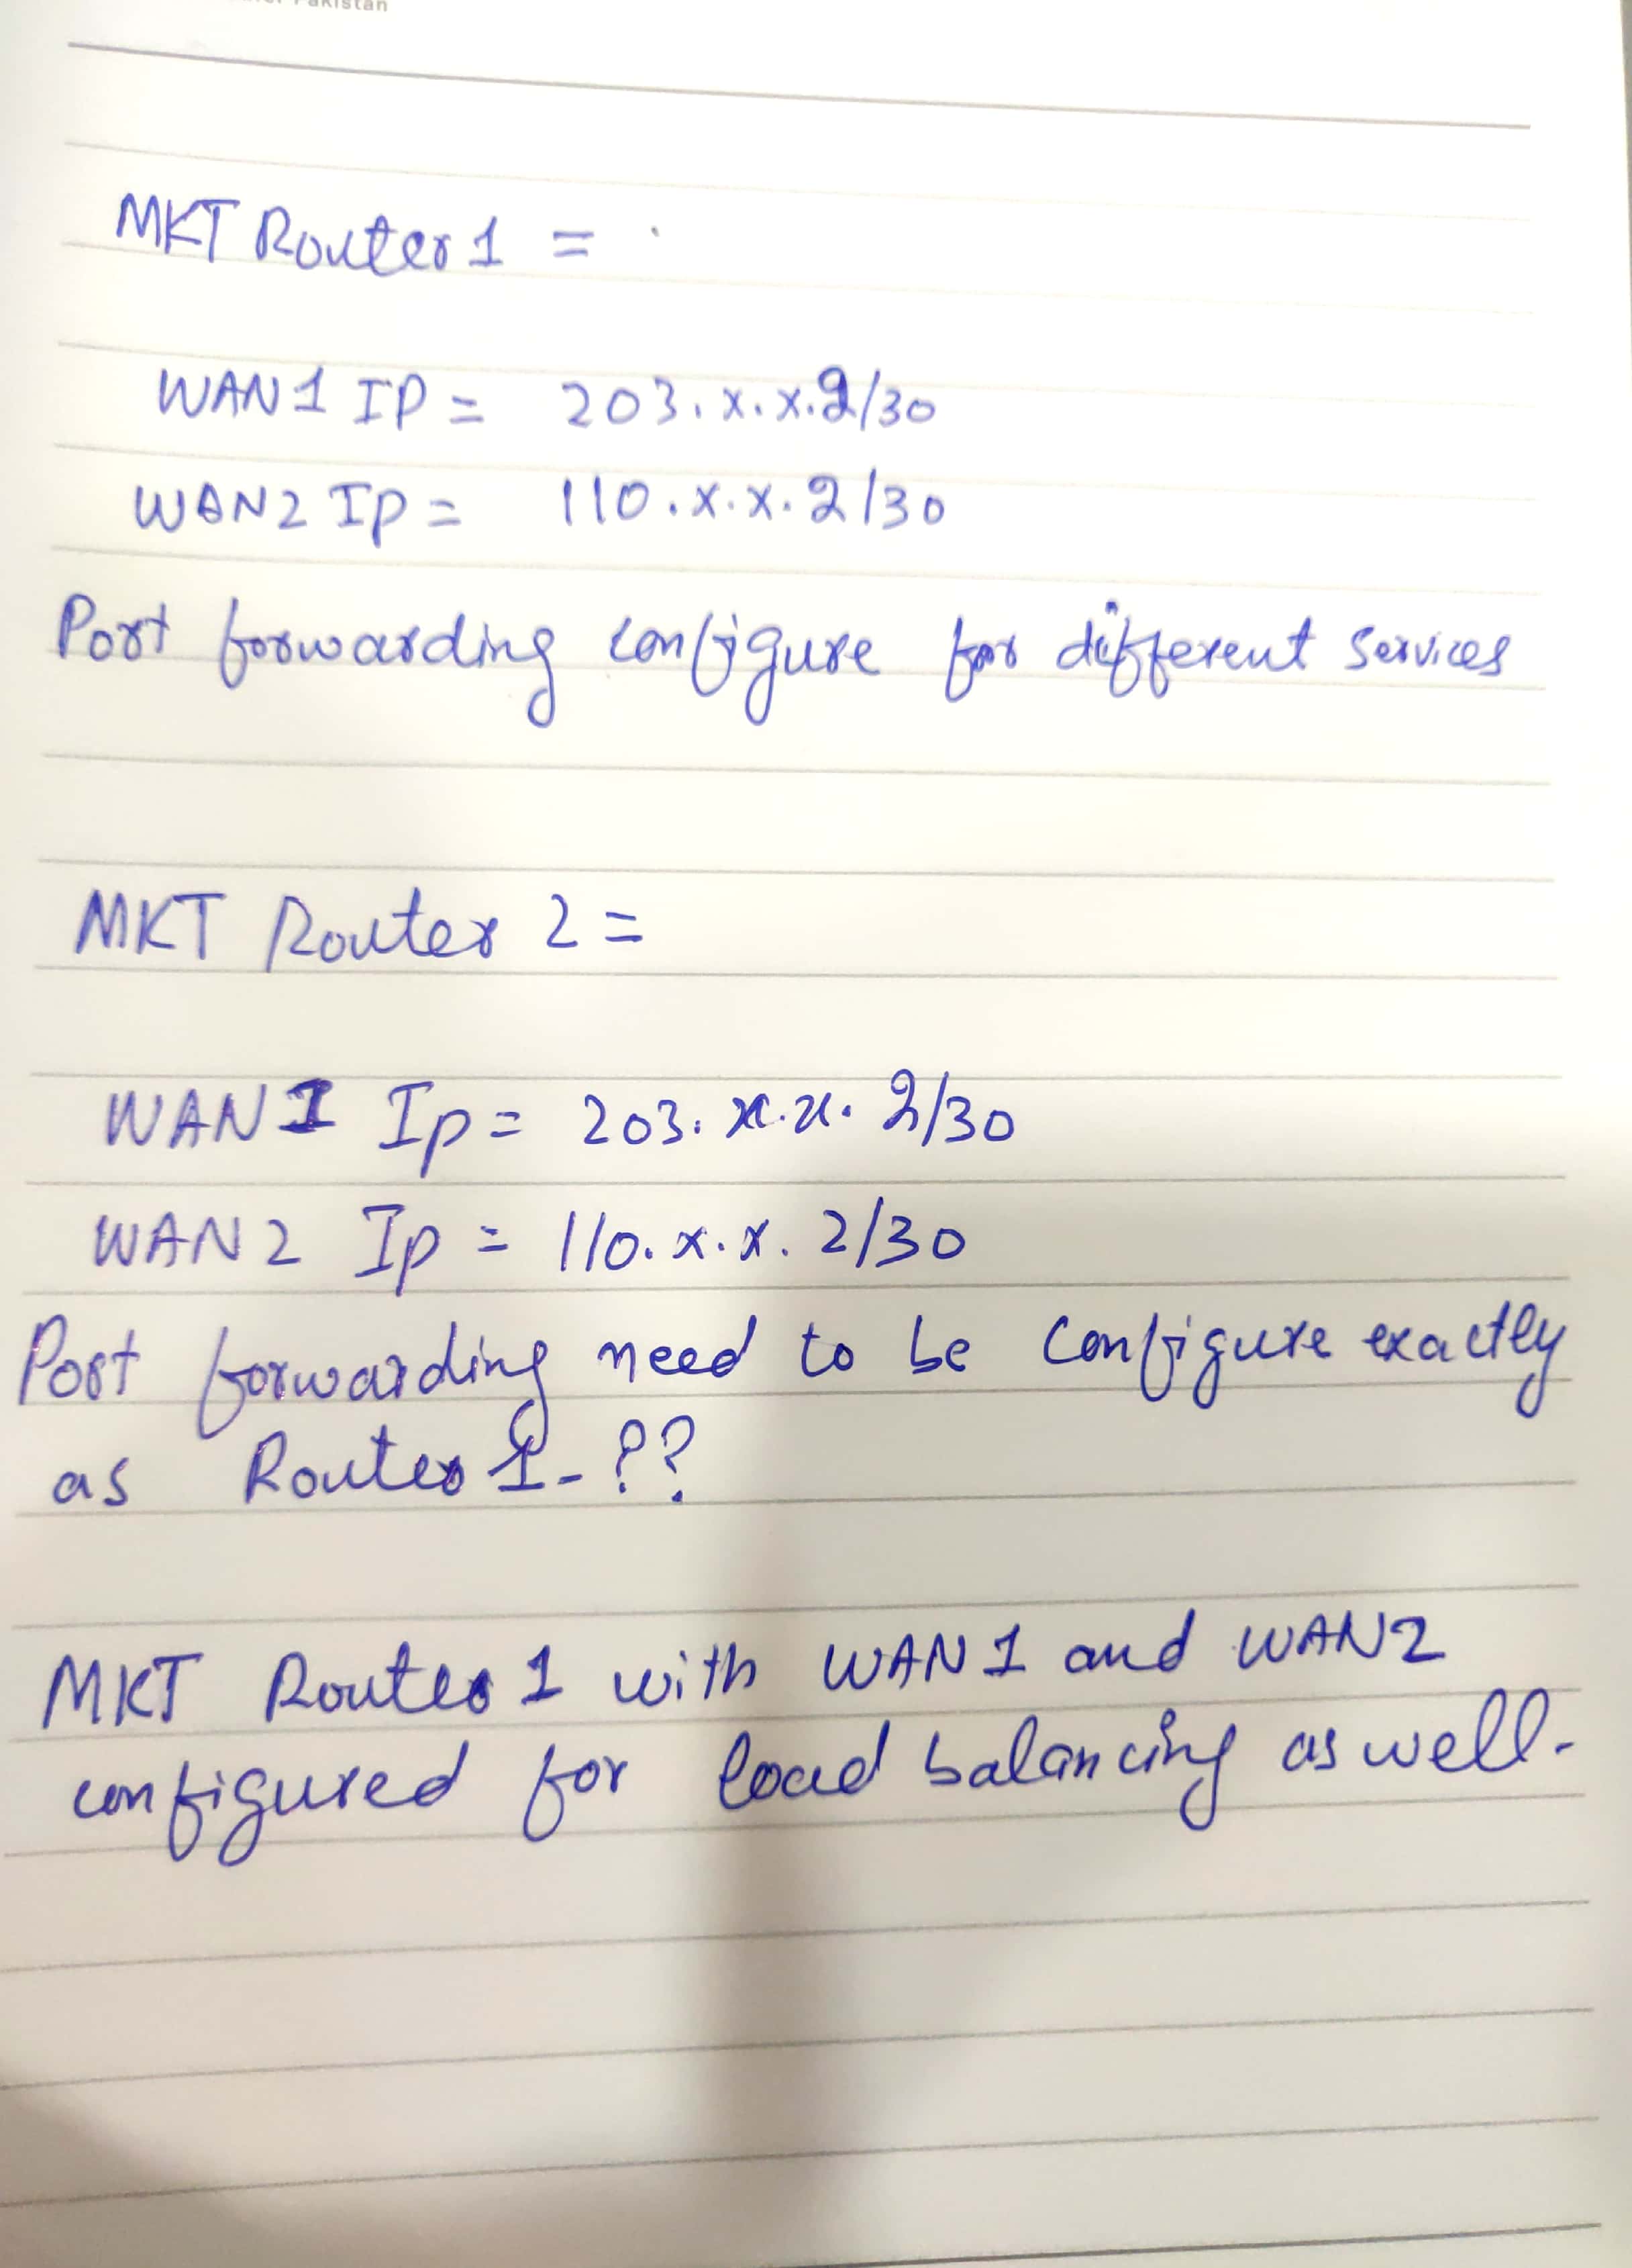 Pakistan
MKT Router 1 =
WAN1 IP = 203.x.x.2/30
WAN2 Ip = 110.x.x.2/30
Port forwarding configure for different services
MKT Router 2 =
WAN1 Ip = 203.x.x.2/30
WAN2 Ip = 110.x.x.2/30
Port forwarding need to be configure exactly
as Router 1-??
MKT Router 1 with WAN1 and WAN2
configured for load balancing as well.